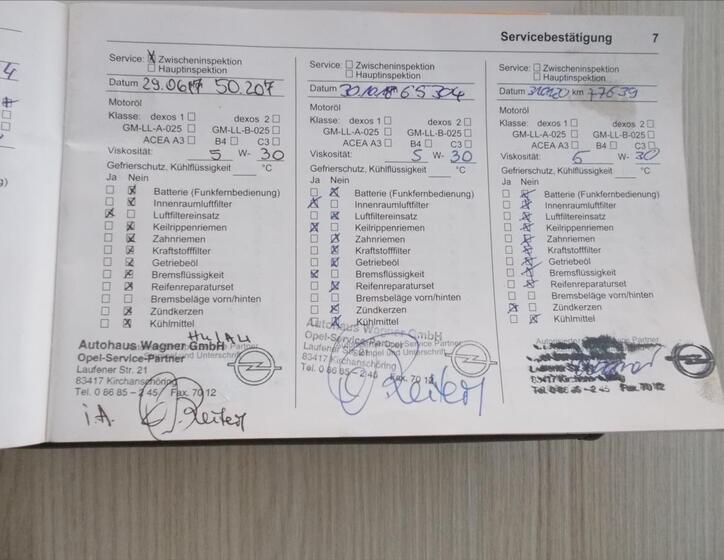 Servicebestätigung 7
Service: Zwischeninspektion
Hauptinspektion
Datum 29.06.17 50.207
Motoröl
Klasse: dexos 1 dexos 2
GM-LL-A-025 GM-LL-B-025
ACEA A3 B4 C3
Viskosität: 5 W- 30
Gefrierschutz, Kühlflüssigkeit °C
Ja Nein
Batterie (Funkfernbedienung)
Innenraumluftfilter
Luftfiltereinsatz
Keilrippenriemen
Zahnriemen
Kraftstofffilter
Getriebeöl
Bremsflüssigkeit
Reifenreparaturset
Bremsbeläge vorn/hinten
Zündkerzen
Kühlmittel
HU/AU
Autohaus Wagner GmbH
Opel-Service-Partner
Laufener Str. 21
83417 Kirchanschöring
Tel. 0 86 85 – 2 45 Fax. 70 12
i.A.
Service: Zwischeninspektion
Hauptinspektion
Datum 30.10.18 65.304
Motoröl
Klasse: dexos 1 dexos 2
GM-LL-A-025 GM-LL-B-025
ACEA A3 B4 C3
Viskosität: 5 W- 30
Gefrierschutz, Kühlflüssigkeit °C
Ja Nein
Batterie (Funkfernbedienung)
Innenraumluftfilter
Luftfiltereinsatz
Keilrippenriemen
Zahnriemen
Kraftstofffilter
Getriebeöl
Bremsflüssigkeit
Reifenreparaturset
Bremsbeläge vorn/hinten
Zündkerzen
Kühlmittel
Autohaus Wagner GmbH
Opel-Service-Partner
Laufener Str. 21
83417 Kirchanschöring
Tel. 0 86 85 – 2 45 Fax. 70 12
Service: Zwischeninspektion
Hauptinspektion
Datum km 77639
Motoröl
Klasse: dexos 1 dexos 2
GM-LL-A-025 GM-LL-B-025
ACEA A3 B4 C3
Viskosität: 5 W- 30
Gefrierschutz, Kühlflüssigkeit °C
Ja Nein
Batterie (Funkfernbedienung)
Innenraumluftfilter
Luftfiltereinsatz
Keilrippenriemen
Zahnriemen
Kraftstofffilter
Getriebeöl
Bremsflüssigkeit
Reifenreparaturset
Bremsbeläge vorn/hinten
Zündkerzen
Kühlmittel
Tel. 0 86 85 – 2 45 Fax. 70 12